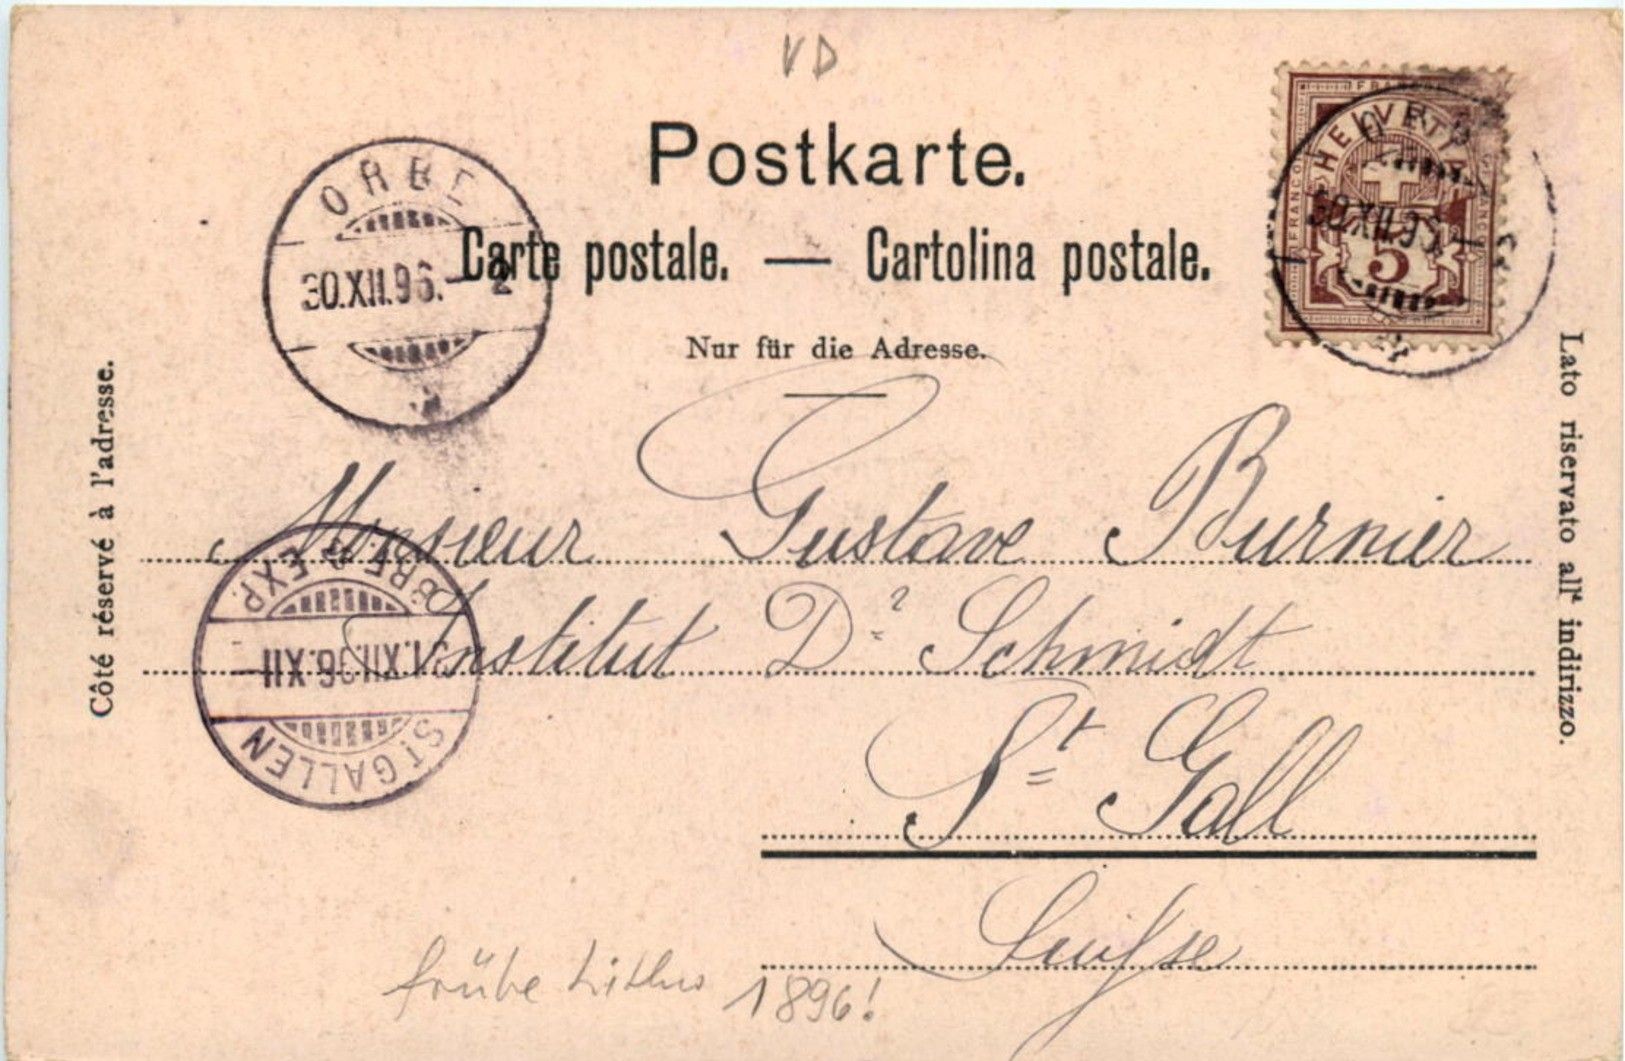 VD
Postkarte.
Carte postale. — Cartolina postale.
Nur für die Adresse.
Côté réservé à l'adresse.
Lato riservato all' indirizzo.
ORBE
30.XII.96.– 2
HELVETIA
FRANCO
5
Monsieur Gustave Burnier
Institut Dr Schmidt
St Gall
Suisse
BRF. EXP.
31.XII.96.XII
ST. GALLEN
frühe Litho 1896!